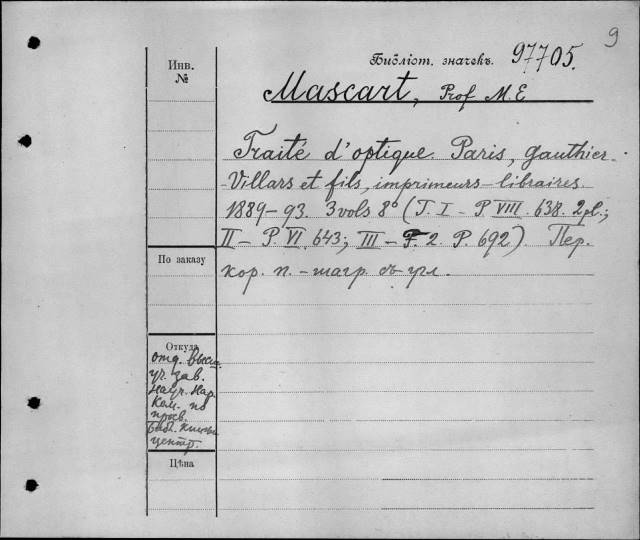 9
Инв.
№
Библіот. значекъ. 97705.
Mascart, Prof M. E
Traité d'optique. Paris, Gauthier-
-Villars et fils, imprimeurs-libraires.
1889-93. 3 vols 8° (T. I - P. VIII. 638. 2 pl.;
II - P. VI, 643; III - F. 2. P. 692). Пер.
кор. п. - шагр. съ угл.
По заказу
Откуда
отд. высш.
уч. зав.
Науч. Нар.
Ком. по
просв.
библ.
центр.
Цѣна